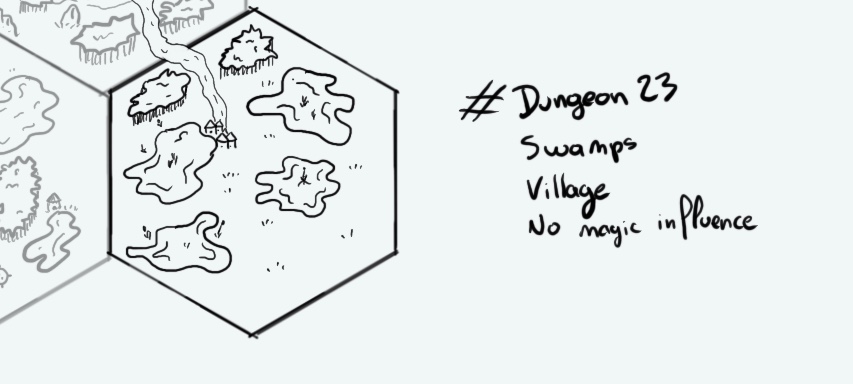 # Dungeon 23
Swamps
Village
No magic influence